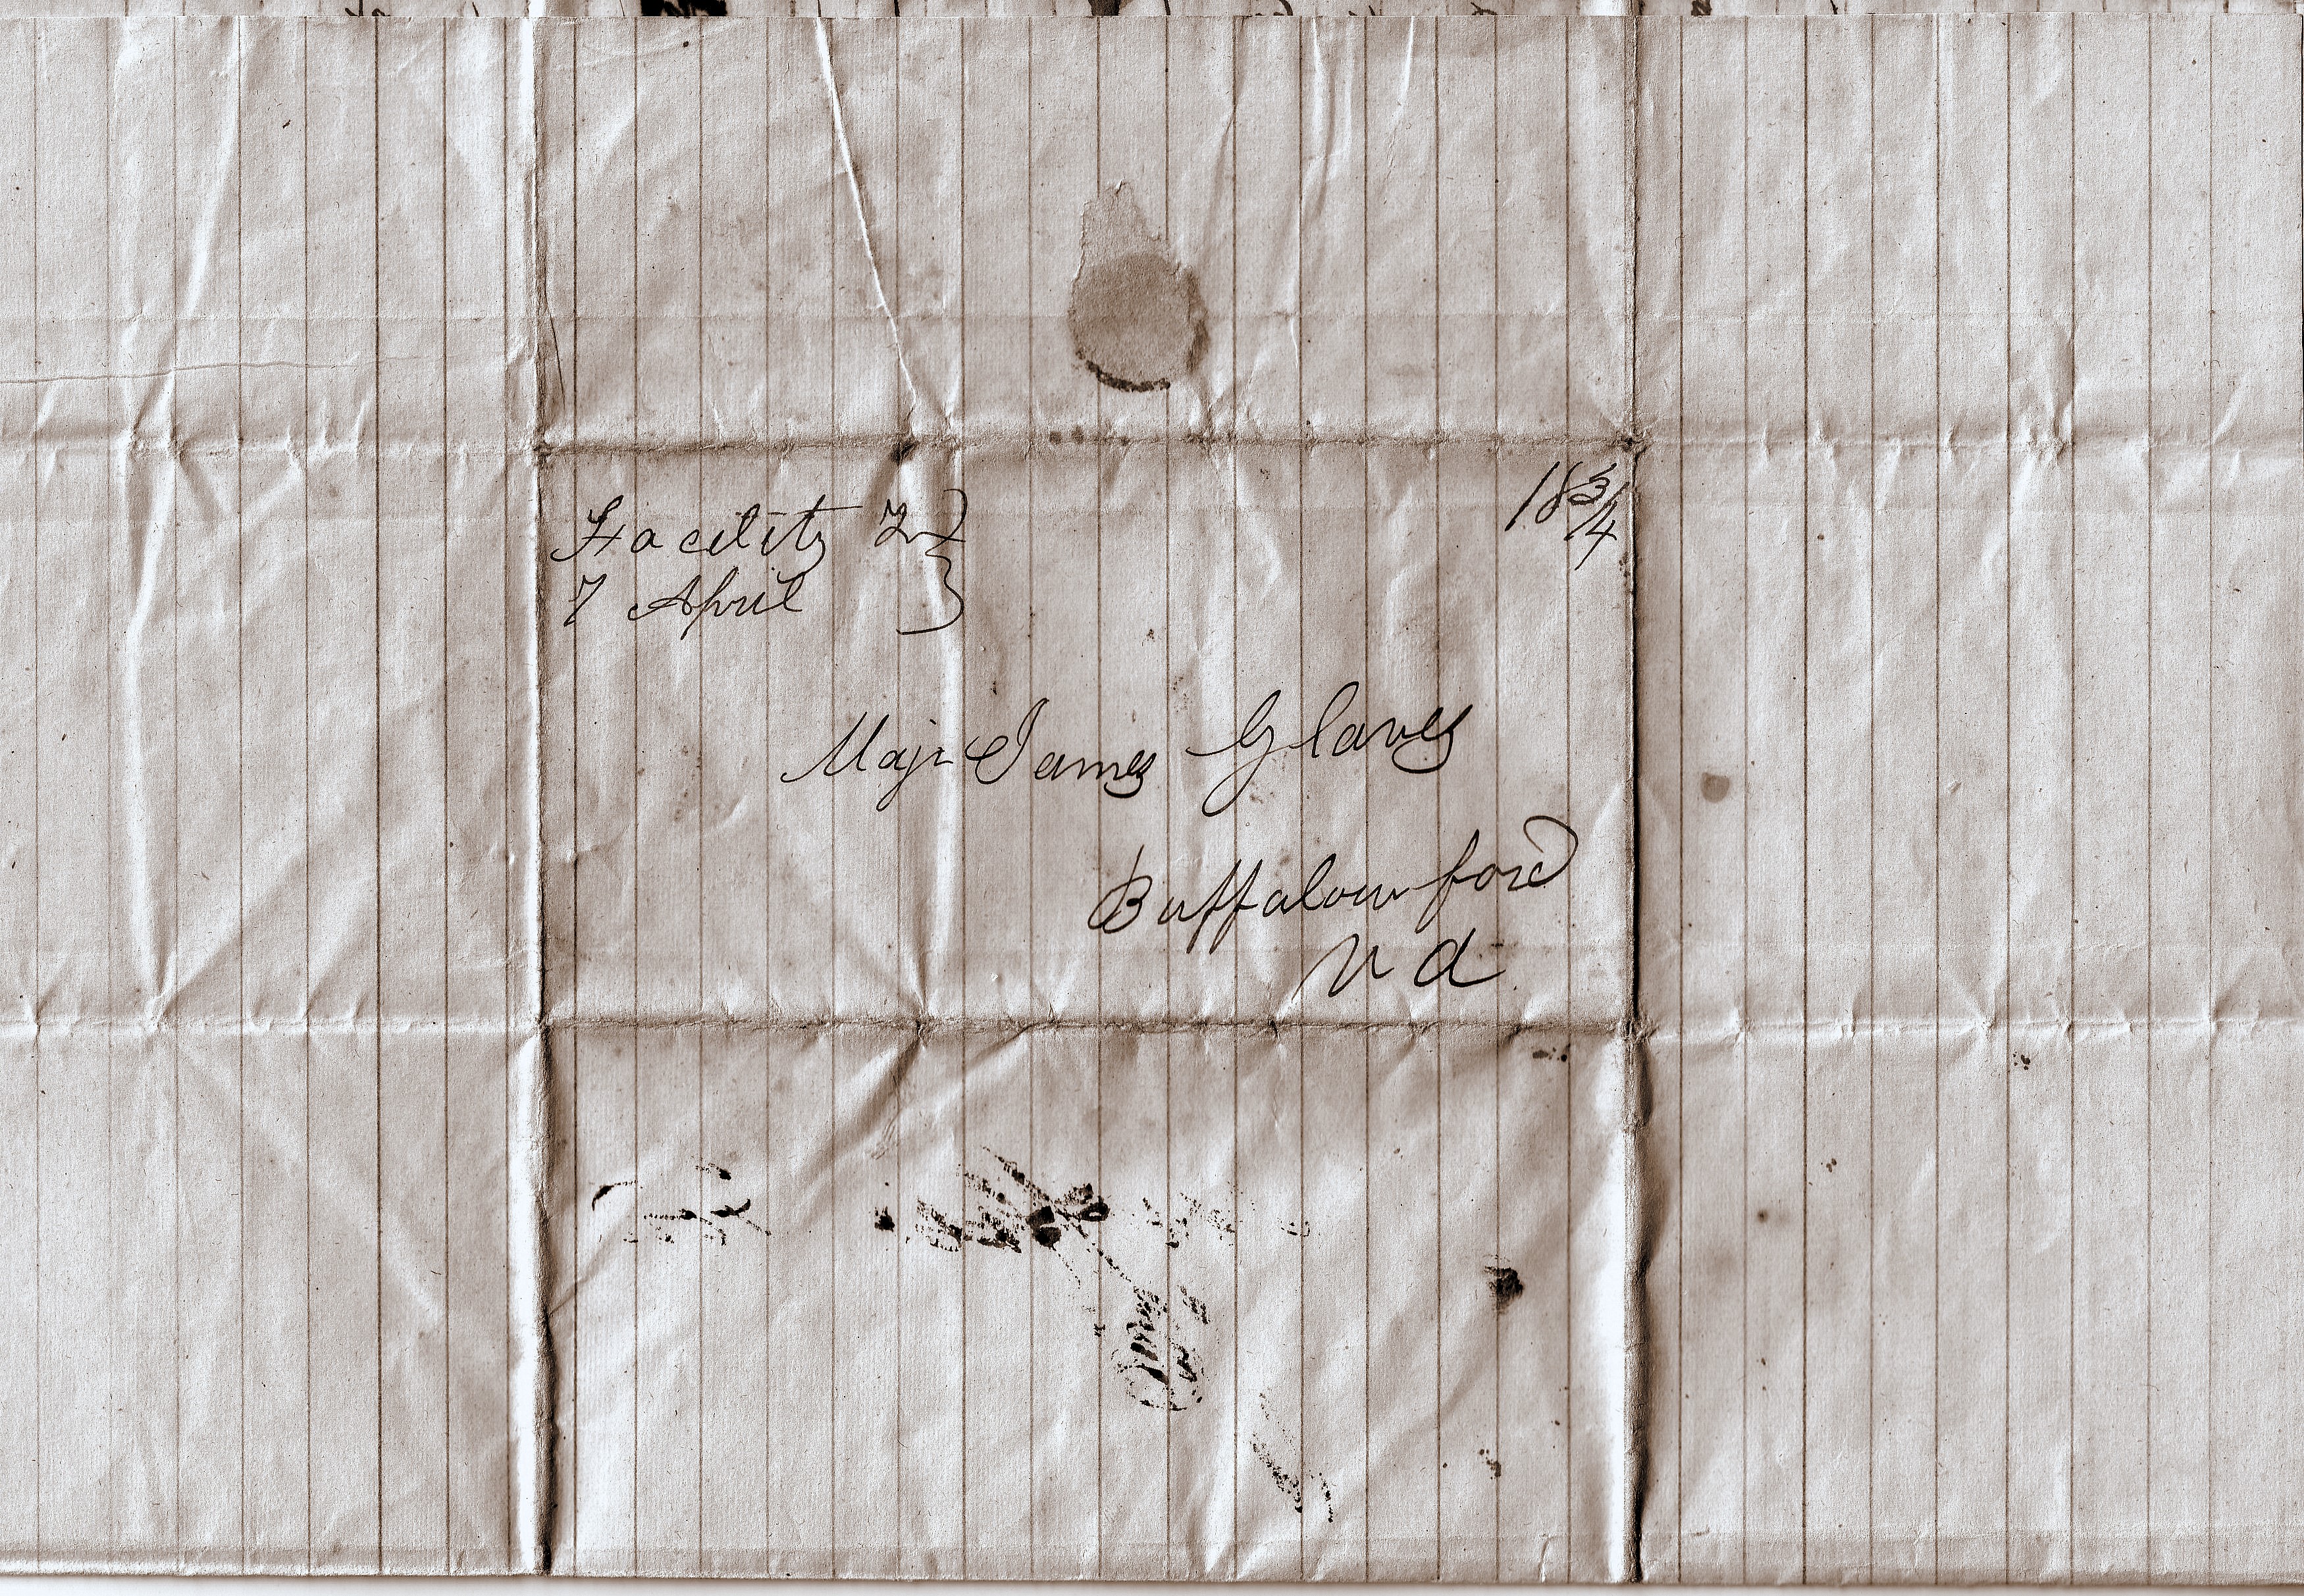 Facility
7 April
18 3/4
Majr James Glaves
Buffalow ford
Va